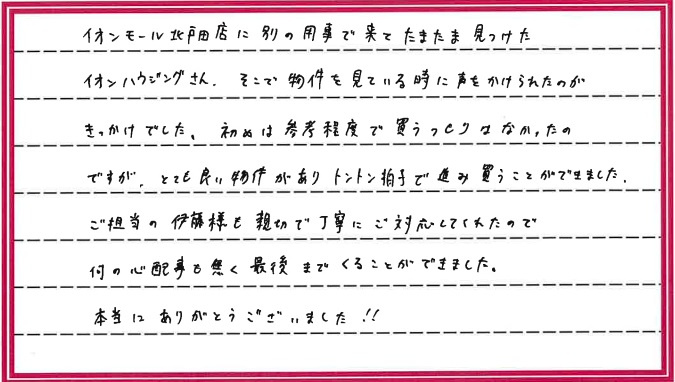 イオンモール北戸田店に別の用事で来てたまたま見つけた
イオンハウジングさん。そこで物件を見ている時に声をかけられたのが
きっかけでした。初めは参考程度で買うつもりはなかったの
ですが、とても良い物件がありトントン拍子で進み買うことができました。
ご担当の伊藤様も親切で丁寧にご対応してくれたので
何の心配事も無く最後までくることができました。
本当にありがとうございました!!